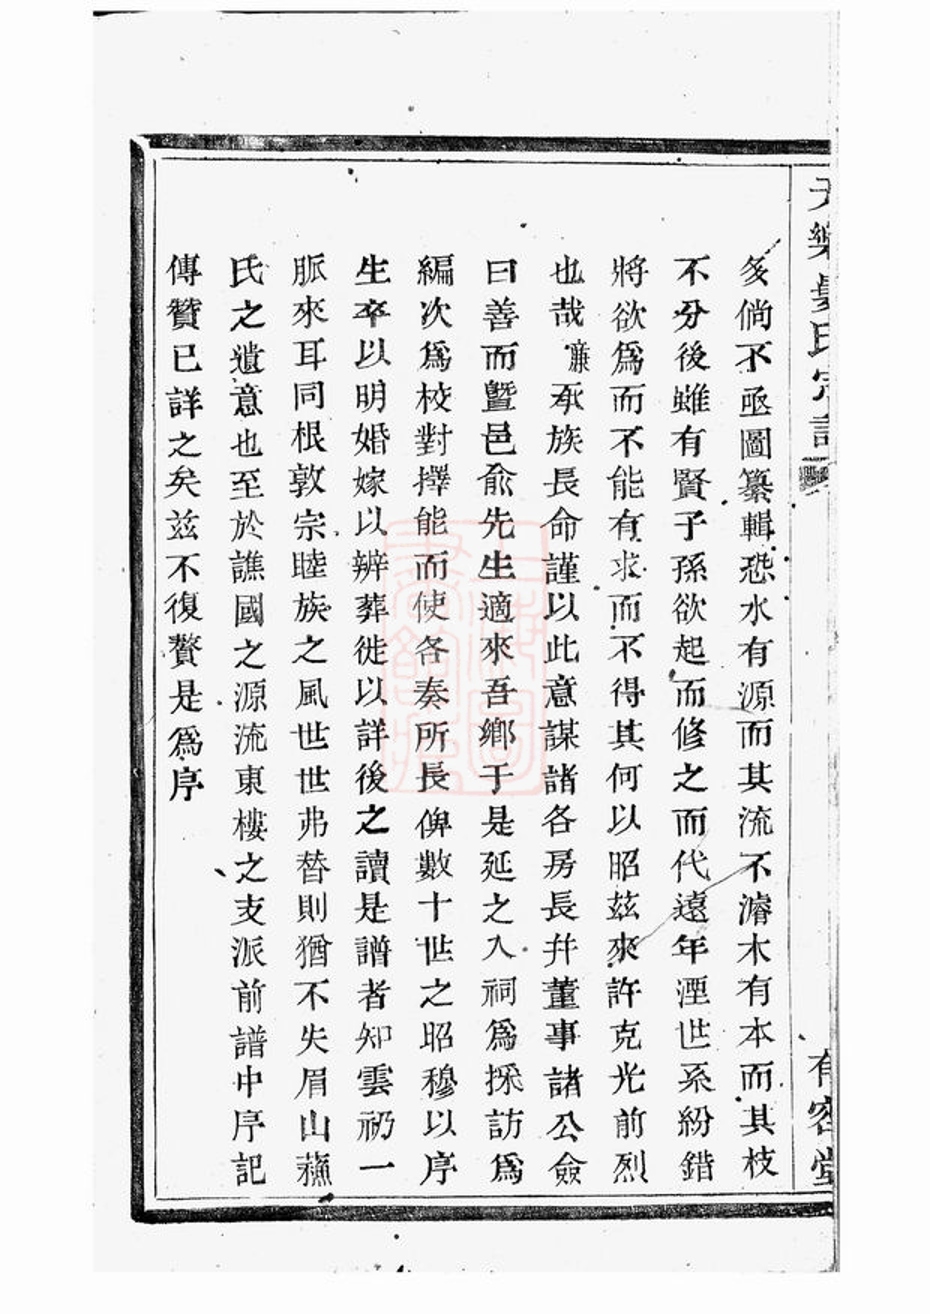 多倘不亟圖纂輯恐水有源而其流不濬木有本而其枝
不分後雖有賢子孫欲起而修之而代遠年湮世系紛錯
將欲爲而不能有求而不得其何以昭玆來許克光前烈
也哉廉承族長命謹以此意謀諸各房長幷董事諸公僉
曰善而暨邑俞先生適來吾鄉于是延之入祠爲採訪爲
編次爲校對擇能而使各奏所長俾數十世之昭穆以序
生卒以明婚嫁以辨葬徙以詳後之讀是譜者知雲礽一
脈來耳同根敦宗睦族之風世世弗替則猶不失眉山蘇
氏之遺意也至於譙國之源流東樓之支派前譜中序記
傳贊已詳之矣玆不復贅是爲序
天樂 氏宗譜
有容堂